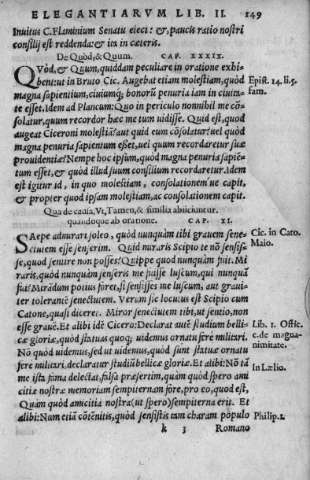 ELEGANTIARVM LIB. II. 149
Inuitus C. Flaminium Senatu eieci: &, paucis ratio nostri
consilij est reddenda: & ita in cæteris.
De Quòd, & Quum. CAP. XXXIX.
QVòd, & Quum, quiddam peculiare in oratione exhi-
bentur in Bruto Cic. Augebat etiam molestiam, quòd Epist. 14. li. 5.
magna sapientium, ciuiumq; bonorũ penuria iam in ciuita- fam.
te esset. Idem ad Plancum: Quo in periculo nonnihil me cō-
solatur, quum recordor hæc me tum uidisse. Quid est, quod
augeat Ciceroni molestiā? aut quid eum cōsolatur? uel quòd
magna penuria sapientum esset, uel quum recordaretur suæ
prouidentiæ? Nempe hoc ipsum, quòd magna penuria sapiē-
tum esset, & quòd illud suum consilium recordaretur. Idem
est igitur id, in quo molestiam, consolationem ue capit,
& propter quod ipsam molestiam, ac consolationem capit.
Qua de causa, Vt, Tamen, & similia abijciuntur
quandoque ab oratione. CAP. XL.
SAepe admirari soleo, quòd nunquam tibi grauem sene- Cic. in Cato.
ctutem esse senserim. Quid miraris Scipio te nō sensis- Maio.
se, quod sentire non posses? Quippe quod nunquam fuit. Mi
raris, quòd nunquam senseris me fuisse luscum, qui nunquā
fui? Mirādum potius foret, si sensisses me luscum, aut graui-
ter tolerantē senectutem. Verum sic locutus est Scipio cum
Catone, quasi diceret. Miror senectutem tibi, ut sentio, non
esse grauē. Et alibi idē Cicero: Declarat autē studium belli- Lib. 1. Offic.
cæ gloriæ, quòd statuas quoq; uidemus ornatu fere militari. c. de magna-
Nō quòd uidemus, sed ut uidemus, quòd sunt statuæ ornatu nimitate.
fere militari, declaratur studiū bellicæ gloriæ. Et alibi: Nō tā
me ista fama delectat, falsa præsertim, quàm quòd spero ami In Lælio.
citiæ nostræ memoriam sempiternam fore, pro eo, quod est,
Quàm quòd amicitia nostra (ut spero) sempiterna erit. Et
alibi: Num etiā cōtēnitis, quòd sensistis tam charam populo Philip. 1.
k 3 Romano